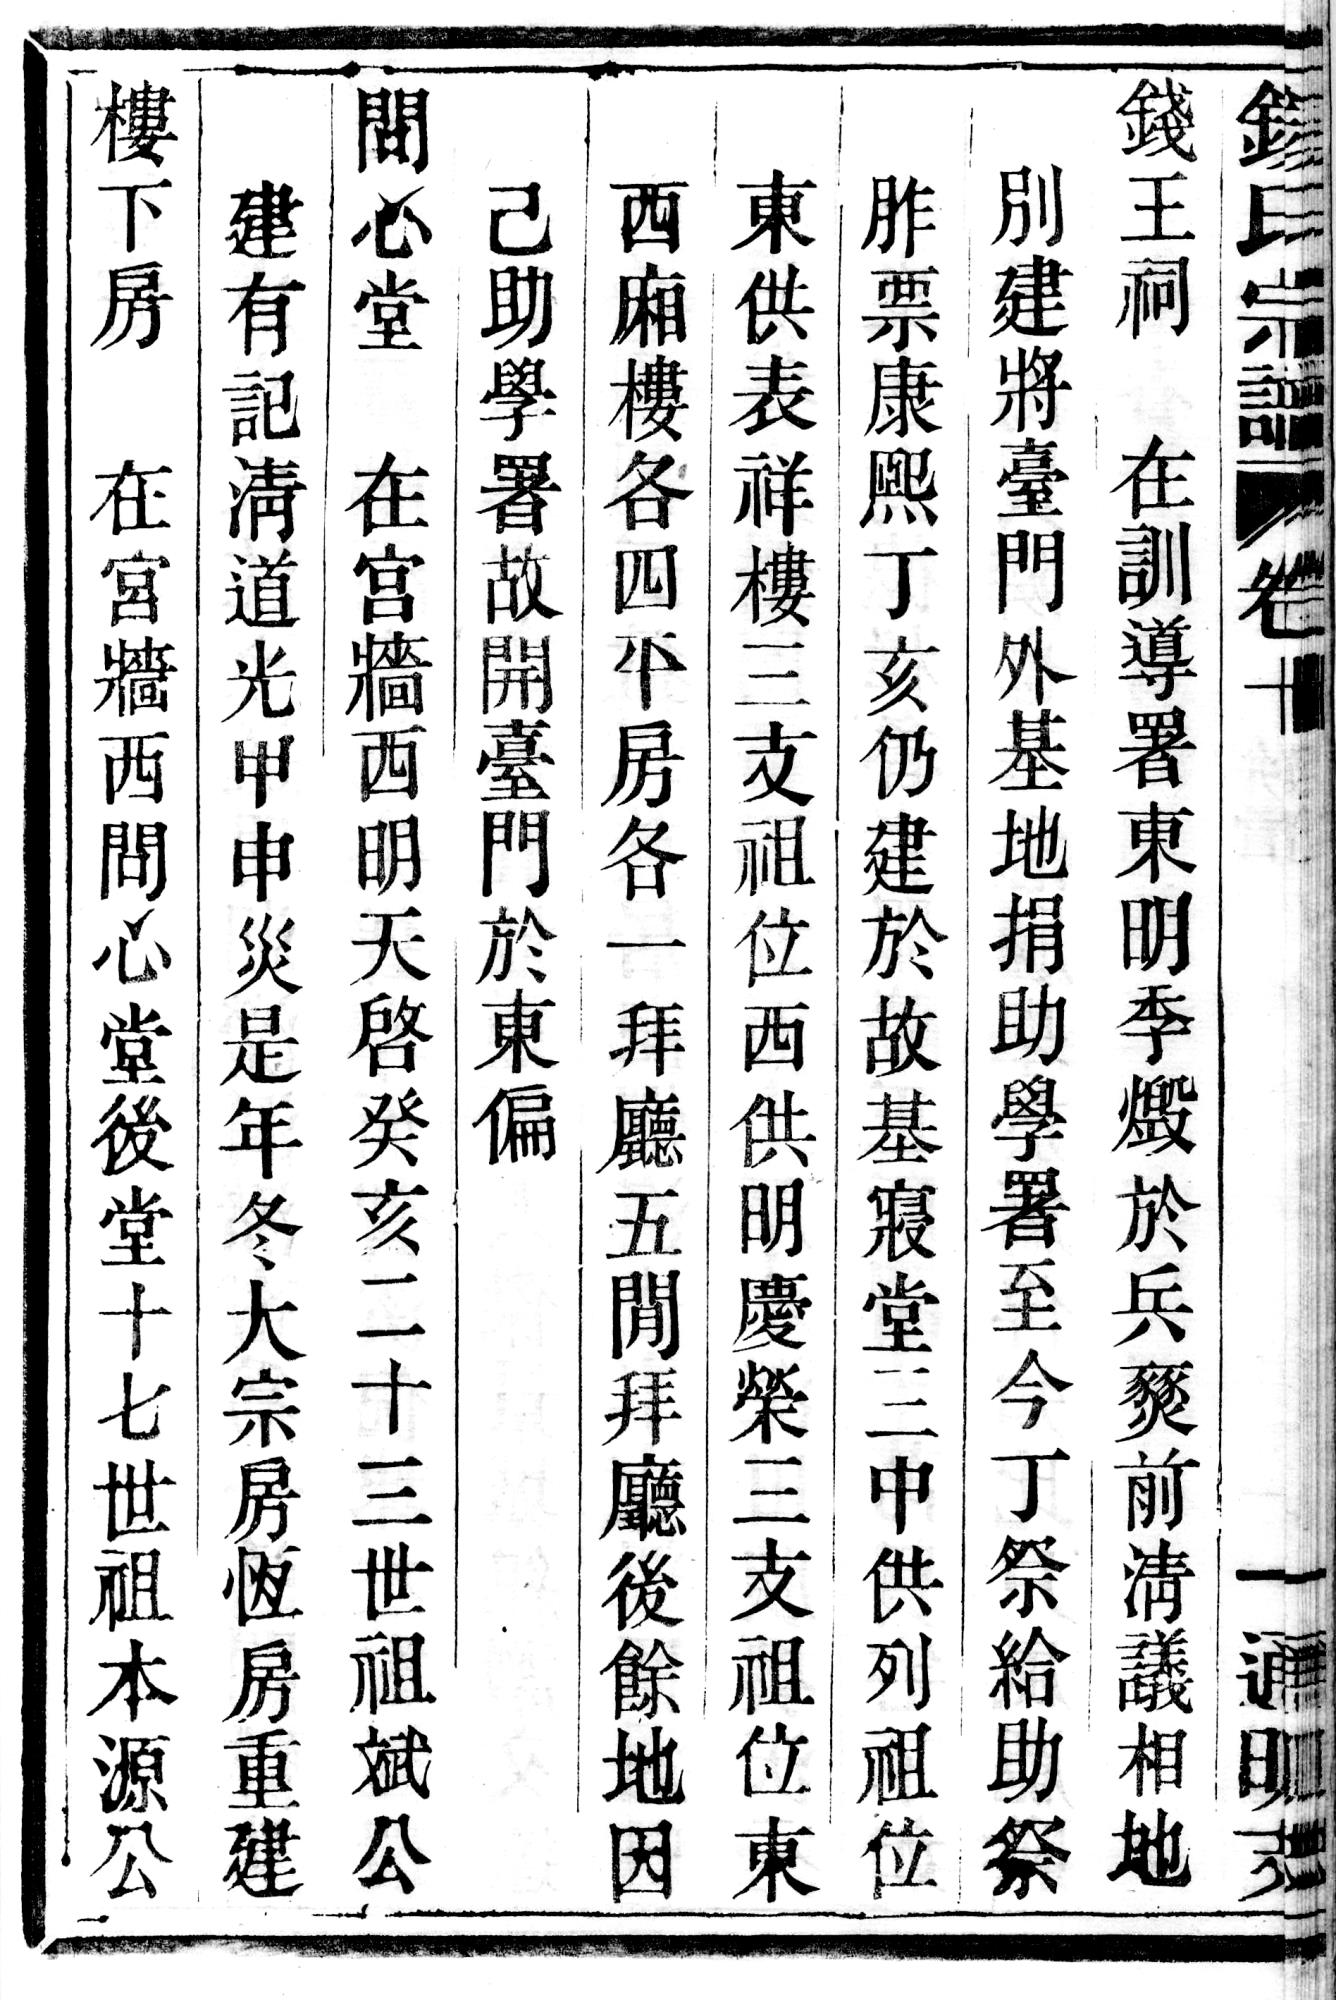 錢氏宗譜 卷十 一 通明
錢王祠 在訓導署東明季燬於兵燹前淸議相地
別建將臺門外基地捐助學署至今丁祭給助祭
胙票康熙丁亥仍建於故基寢堂三中供列祖位
東供表祥樓三支祖位西供明慶榮三支祖位東
西廂樓各四平房各一拜廳五閒拜廳後餘地因
己助學署故開臺門於東偏
問心堂 在宮牆西明天啓癸亥二十三世祖斌公
建有記淸道光甲申災是年冬大宗房恆房重建
樓下房 在宮牆西問心堂後堂十七世祖本源公